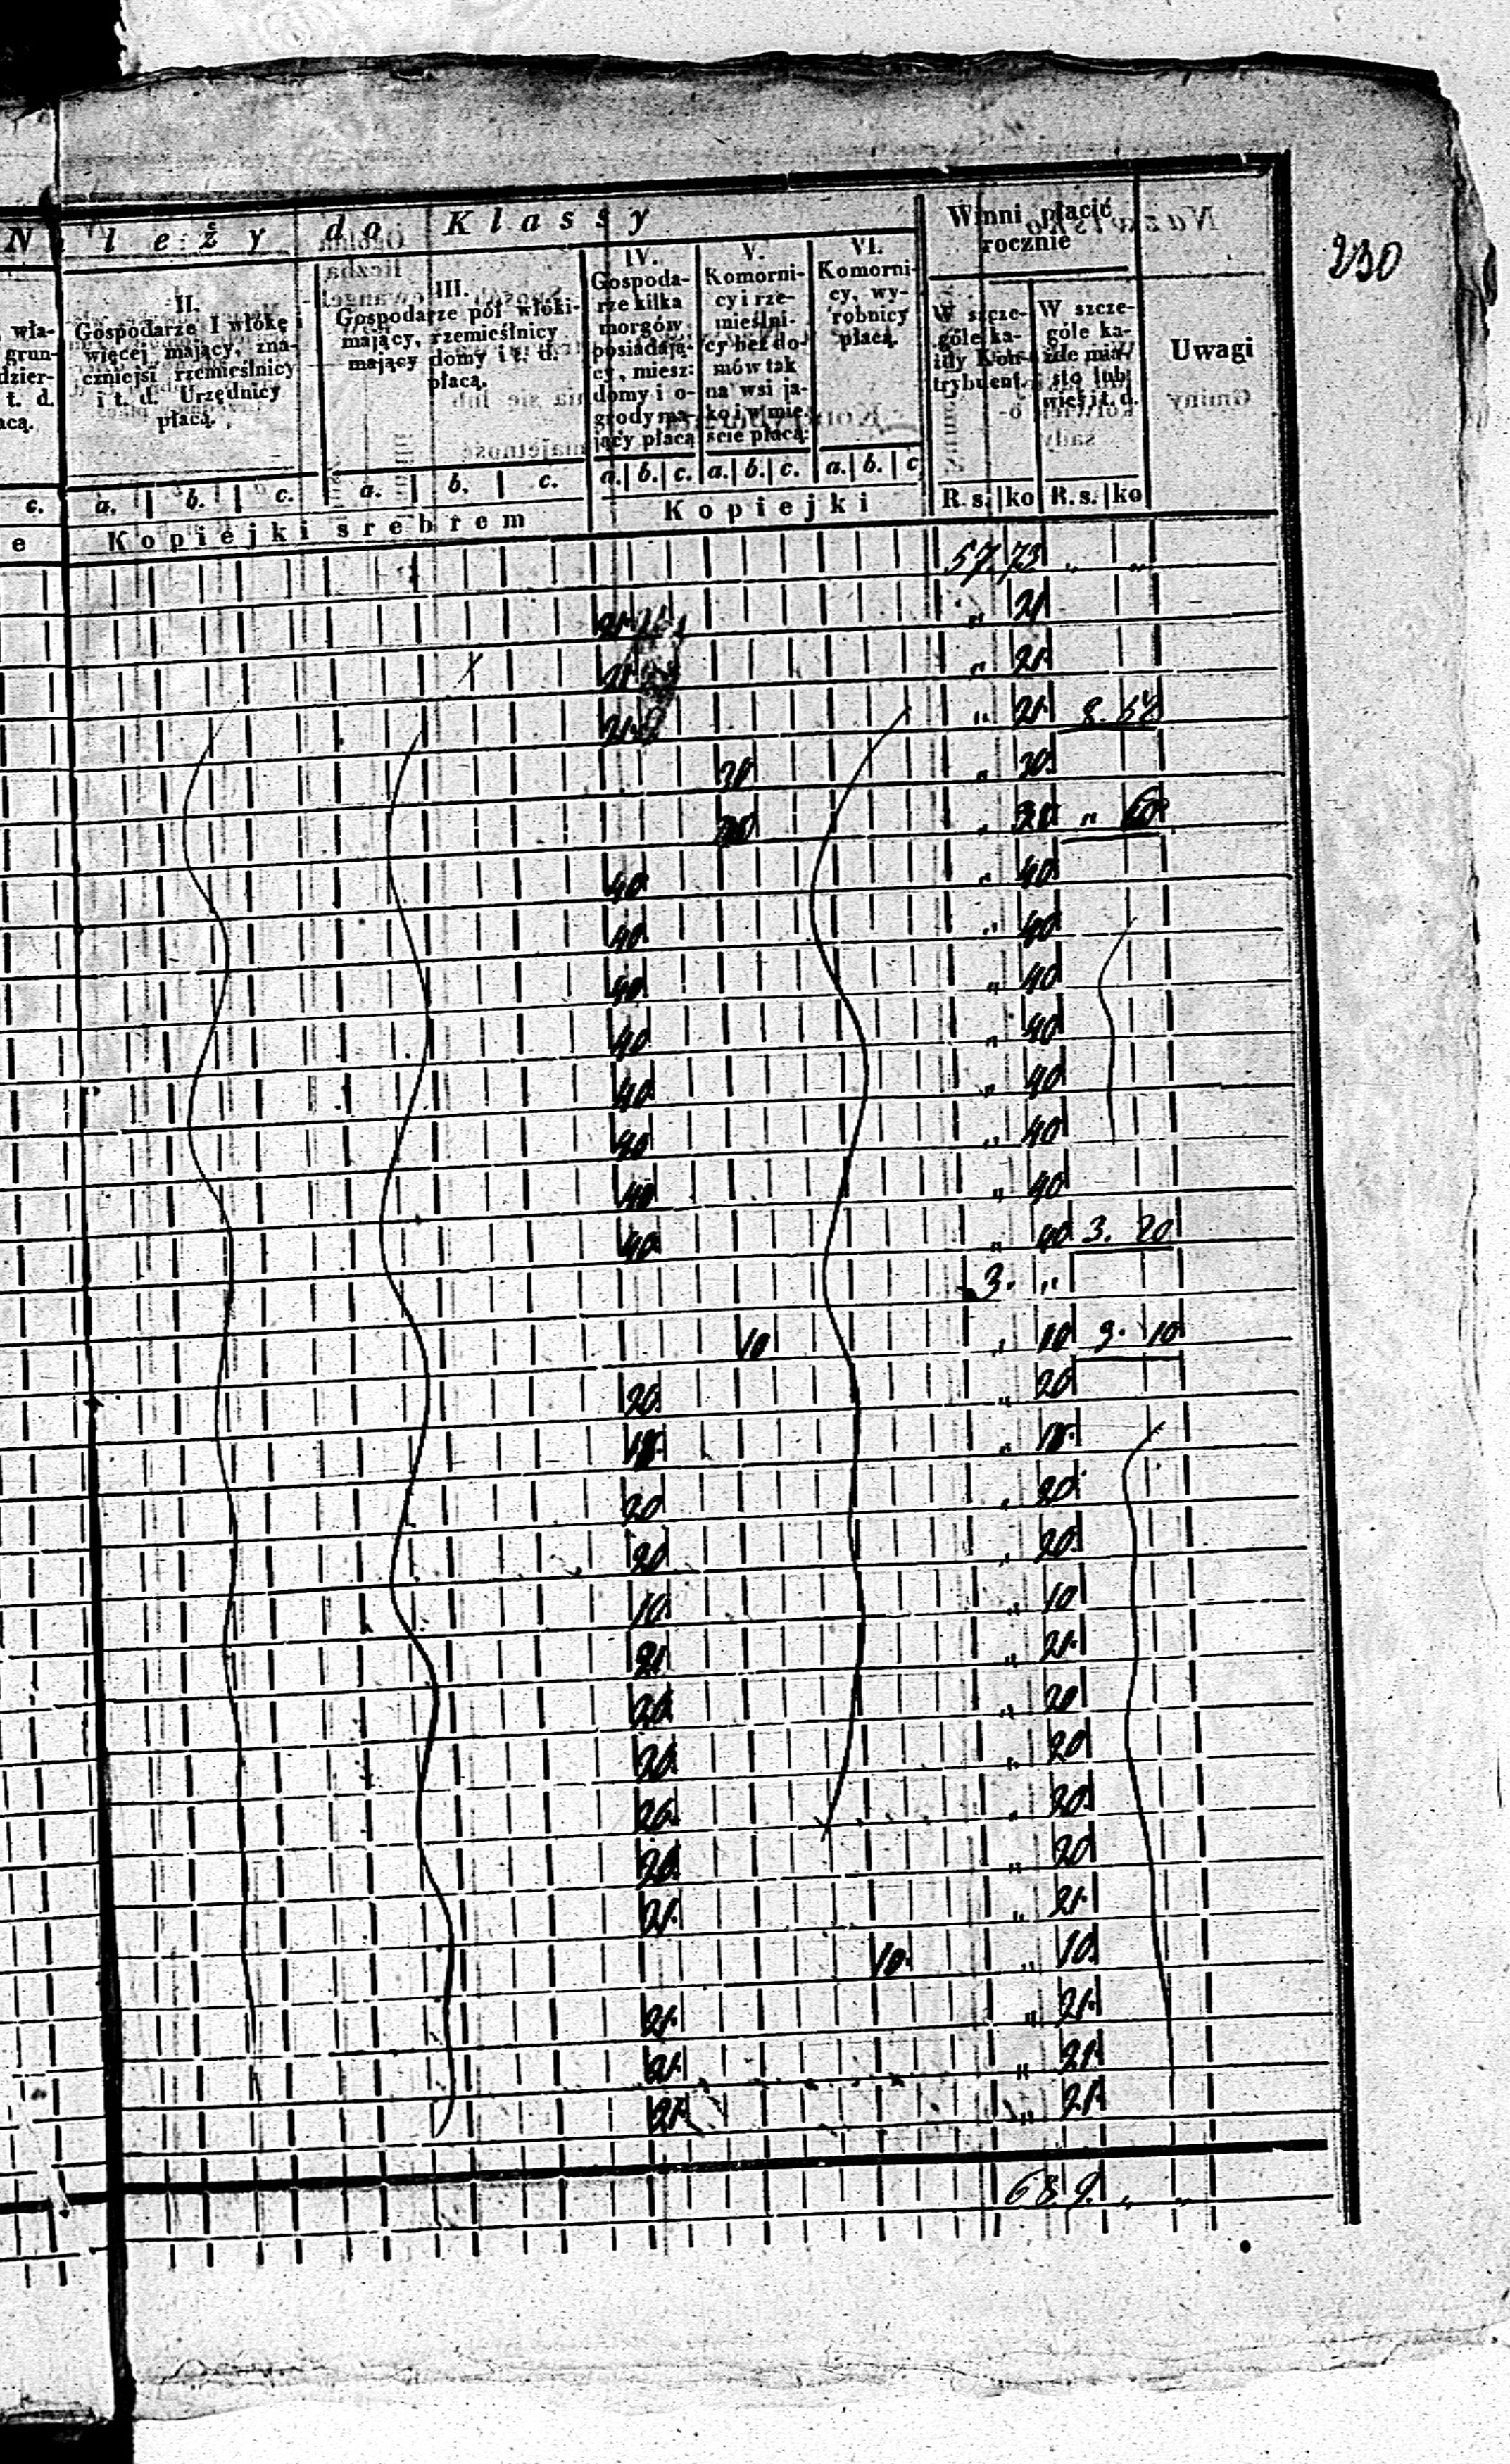 230
N leży do Klassy
Winni płacić
rocznie
Uwagi
wła-
grun-
dzier-
t. d.
acą.
II.
Gospodarze I włókę i
więcej mający, zna-
czniejsi rzemieślnicy
i t. d. Urzędnicy
płacą.
III.
Gospodarze pół włóki
mający, rzemieślnicy
mający domy i t. d.
płacą.
IV.
Gospoda-
rze kilka
morgów
posiadają-
cy, miesz:
domy i o-
grody ma-
jący płacą
V.
Komorni-
cy i rze-
mieślni-
cy bez do-
mów tak
na wsi ja-
ko i w mie-
ście płacą:
VI.
Komorni-
cy, wy-
robnicy
płacą.
W szcze-
góle ka-
żdy Kon-
trybuent.
W szcze-
góle ka-
żde mia-
sto lub
wieś i t. d.
c. a. b. c. a. b. c. a. b. c. a. b. c. a. b. c
R. s. ko R. s. ko
e Kopiejki srebrem Kopiejki
57. 73 " "
21 " 21
21 " 21
21 " 21
20 " 20
20 " 20
40 " 40
40 " 40
40 " 40
40 " 40
40 " 40
40 " 40
40 " 40
40 " 40 3. 20
3. "
10 " 10 3. 10
20 " 20
" 
20 " 20
20 " 20
10 " 10
21 " 21
20 " 20
20 " 20
20 " 20
20 " 20
21 " 21
10 " 10
21 " 21
21 " 21
21 " 21
68 9. " "